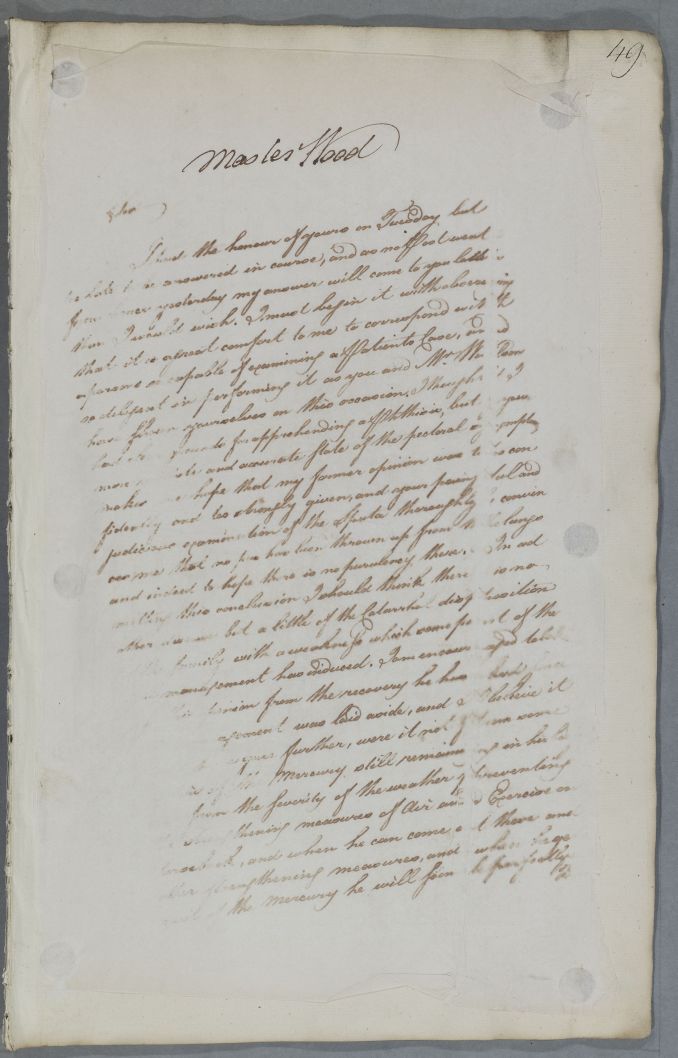 49
Master Wood
Sir
I had the honour of yours on Tuesday but
to be answered in course, and as no Post went
from yesterday my answer will come to you later
than I would wish. I must begin it with observing
that it is a great comfort to me to correspond with
a person so capable of examining a Patients Case, and
so diligent in performing it as you and Mr.
have shown yourselves on this occasion. I thought I
had grounds for apprehending a Phthisis, but your
more and accurate state of the pectoral symptoms
makes me hope that my former opinion was too con
fidently and too strongly given, and your painful and
judicious examination of the Sputa thoroughly convin
ces me that no pus has been thrown up from the lungs
and indeed to hope there is no purulency there. In ad
mitting this conclusion I should think there is no
other but a little of the Catarrhal disposition
of the family with a weakness which some part of the
management has induced. I am encouraged to
from the recovery he has had since
was laid aside, and I believe it
further, were it not
of the Mercury still remaining in his
from the severity of the weather preventing
the strengthening measures of Air and Exercise on
horseback, and when he can come at these and
other strengthening measures, and when
of the Mercury he will soon be perfectly